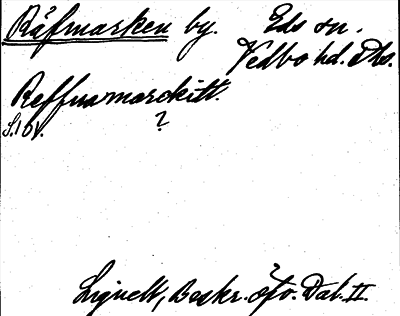 Räfmarken by. Eds sn.
Vedbo hd. Dls.
Reffnamarckitt.
S. 101. ?
Lignell, Beskr. öfv. Dal. II.